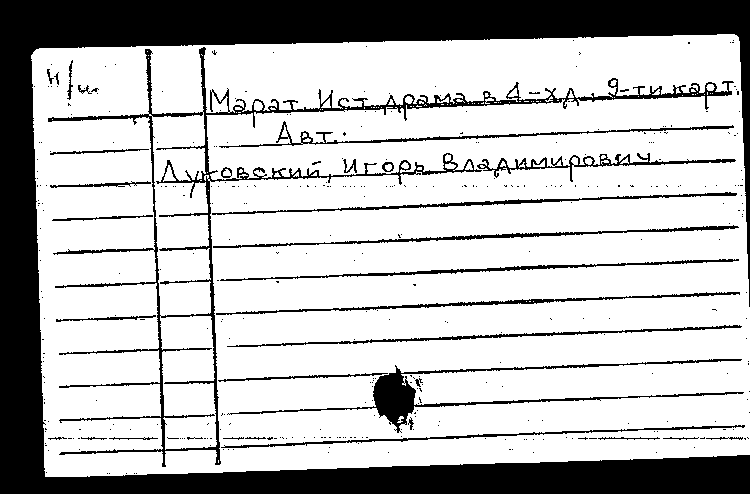 н/ш
Марат. Ист драма в 4-х д. 9-ти карт.
Авт.:
Луковский, Игорь Владимирович.